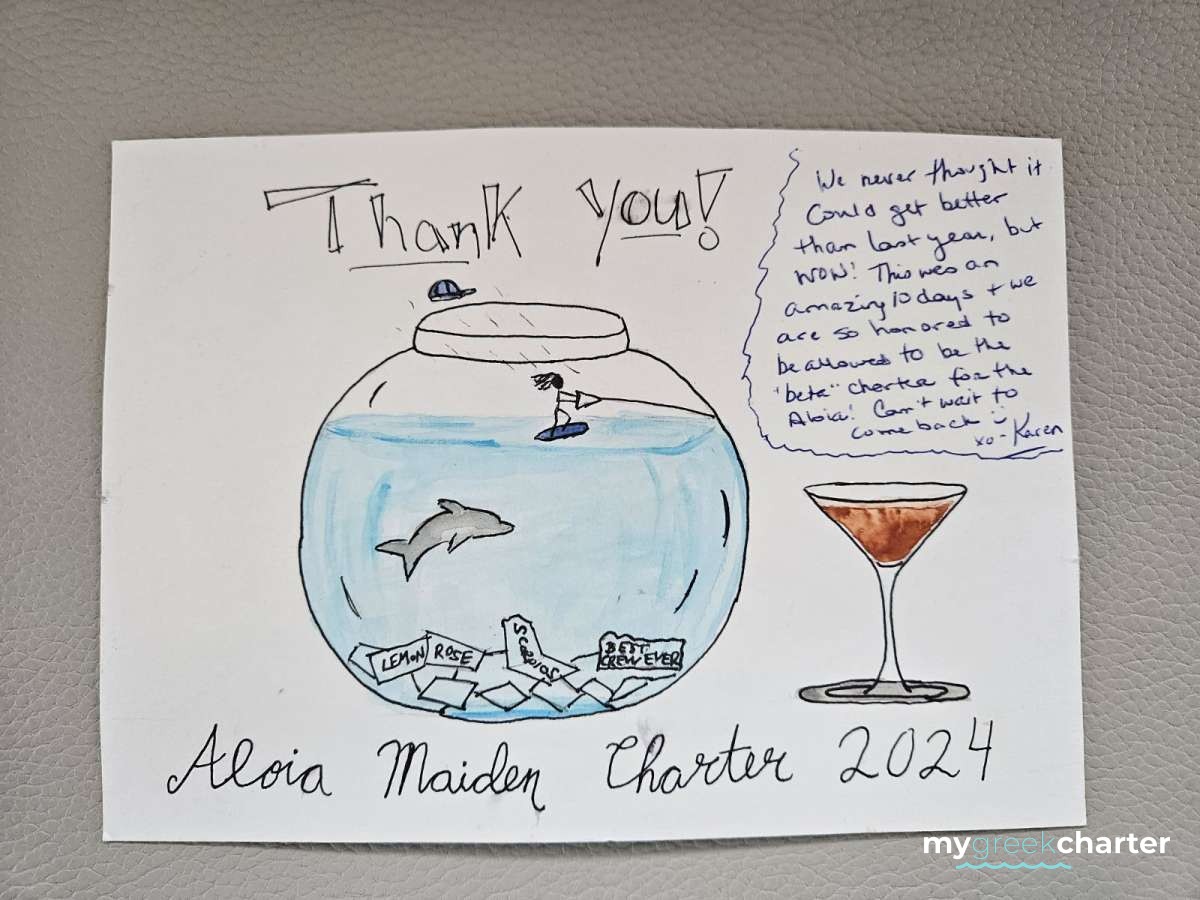 Thank you!
We never thought it
could get better
than last year, but
WOW! This was an
amazing 10 days + we
are so honored to
be allowed to be the
"beta" charter for the
Aloia! Can't wait to
come back
xo-Karen
LEMON ROSE
SCORPIOS
BEST
CREW EVER
Aloia Maiden Charter 2024
mygreekcharter